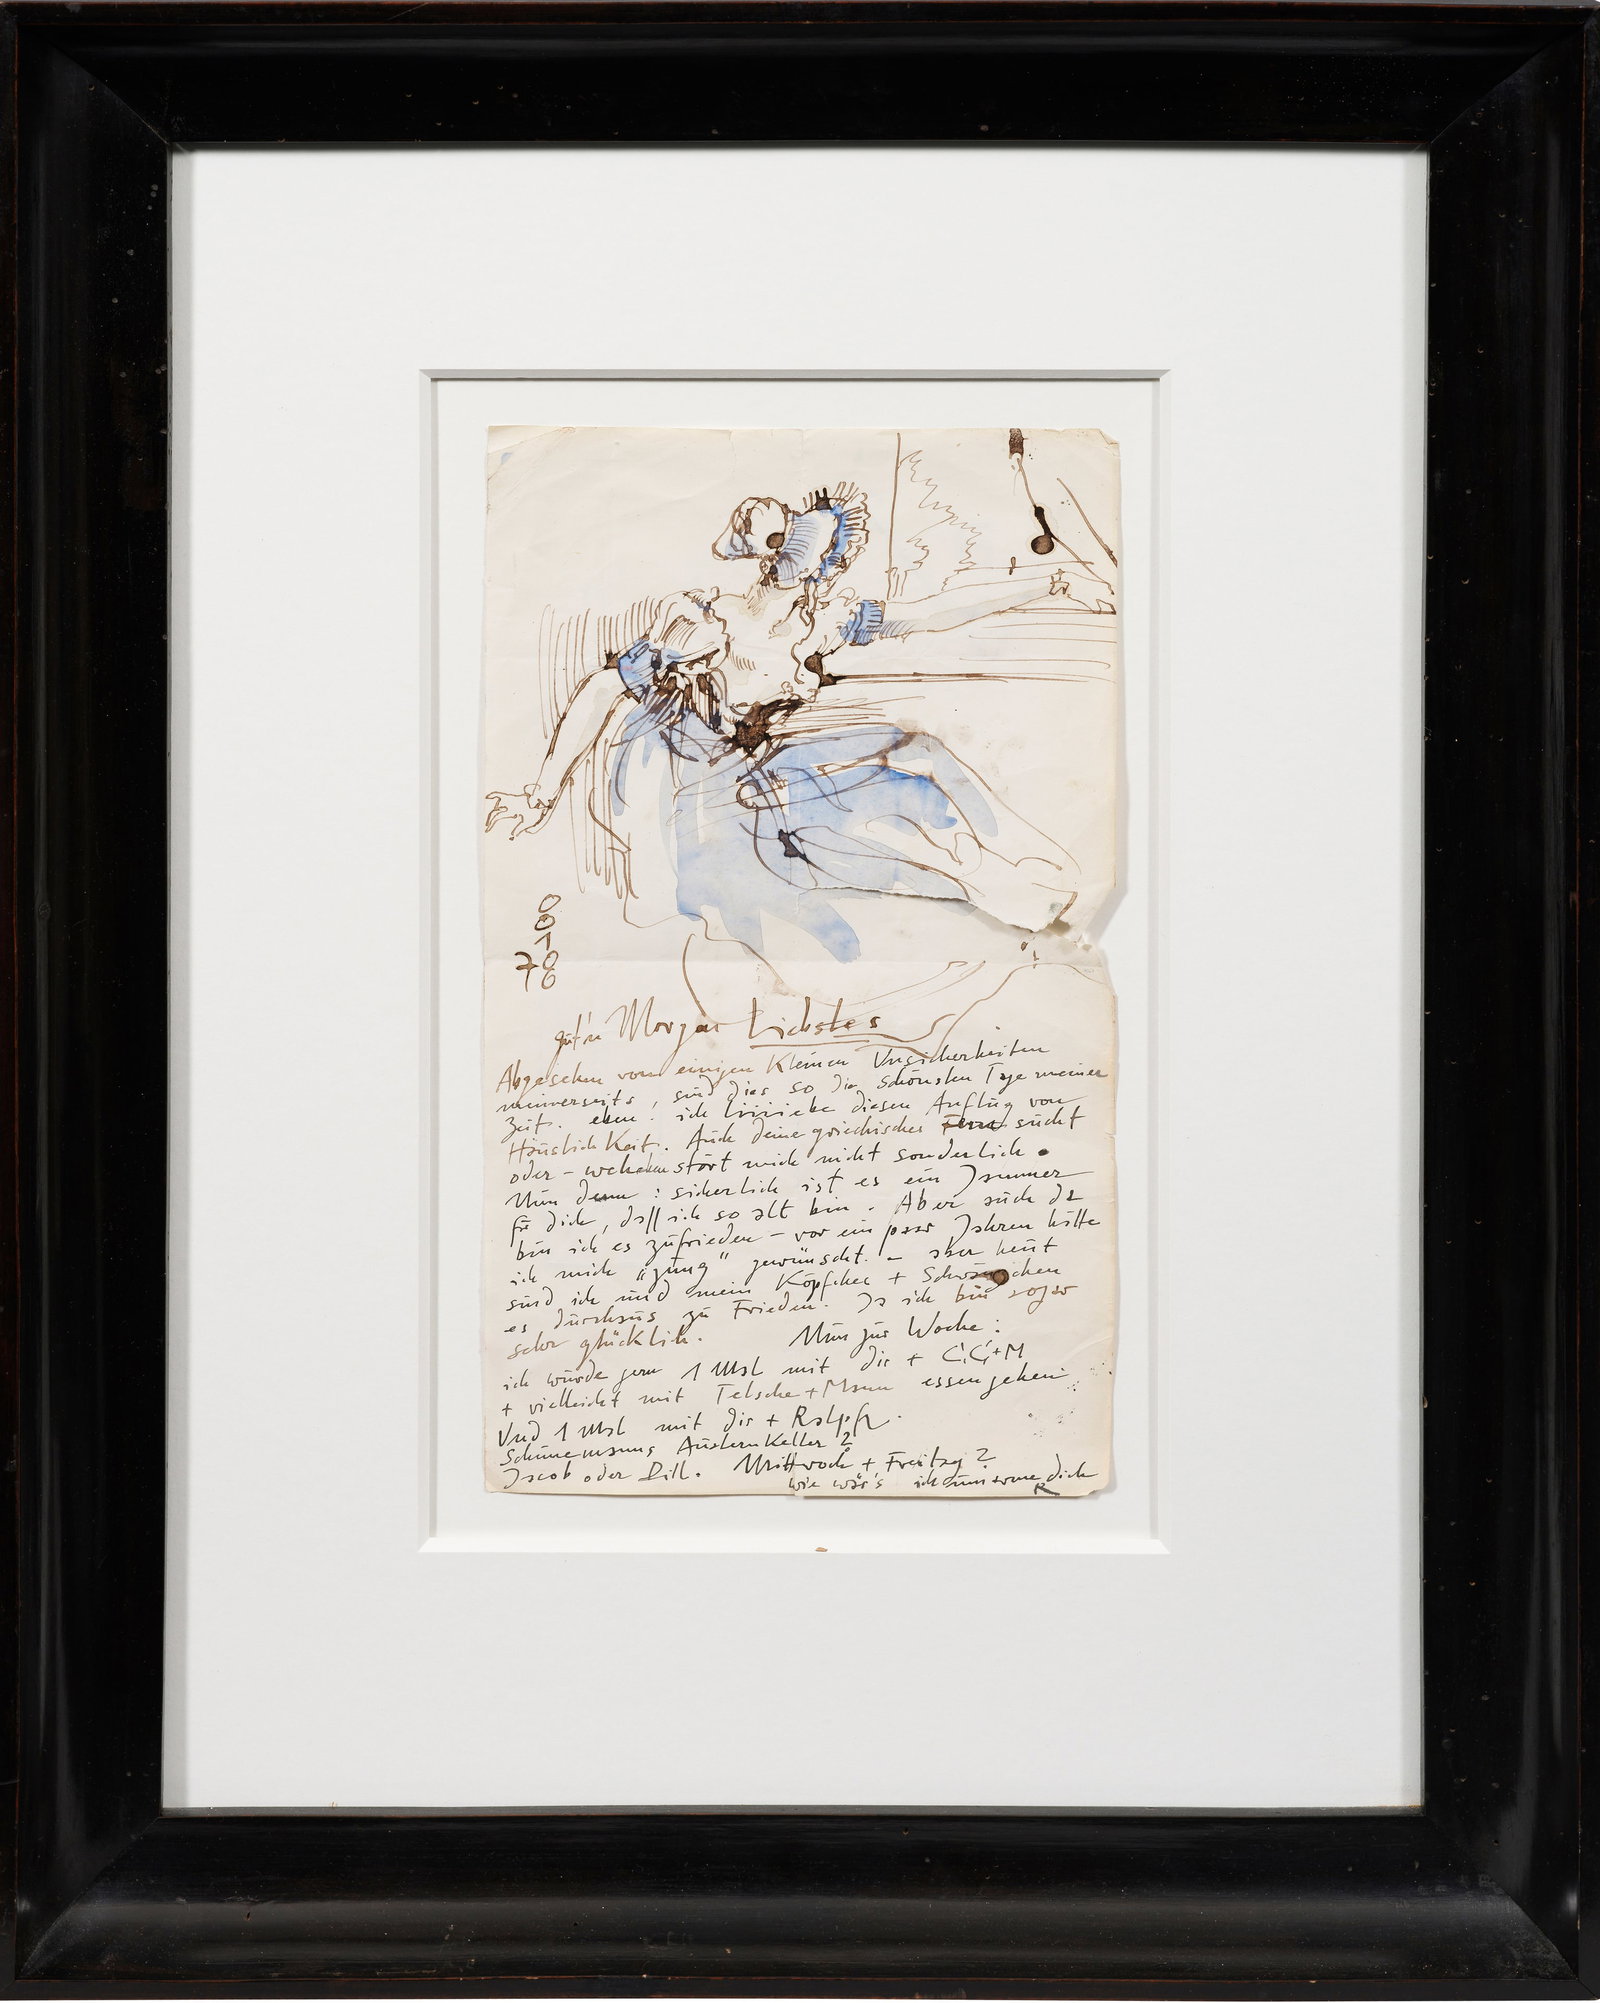 0
0
1
70
6
gut'n Morgen Liebstes
Abgesehen von einigen Kleinen Unsicherheiten
meinerseits, sind dies so die schönsten Tage meiner
Zeit. eben: ich liiiiebe diesen Anflug von
HäuslichKeit. Auch deine griechisches Fern sucht
oder - wehchen stört mich nicht sonderlich.
Nun denn: sicherlich ist es ein Jammer
für dich, daß ich so alt bin. Aber auch da
bin ich es zufrieden - vor ein paar Jahren hätte
ich mich "jung" gewünscht. - aber heut
sind ich und mein Köpfchen + Schwänzchen
es durchaus zu Frieden. Ja ich bin sogar
sehr glücklich. Nun zur Woche:
ich würde gern 1 Mal mit dir + C,C,+M
+ vielleicht mit Telsche + Mann essen gehen
Und 1 Mal mit dir + Ralph.
Schünemanns AusternKeller?
Jacob oder Dill. Mittwoch + Freitag?
wie wär's ich umarme dich